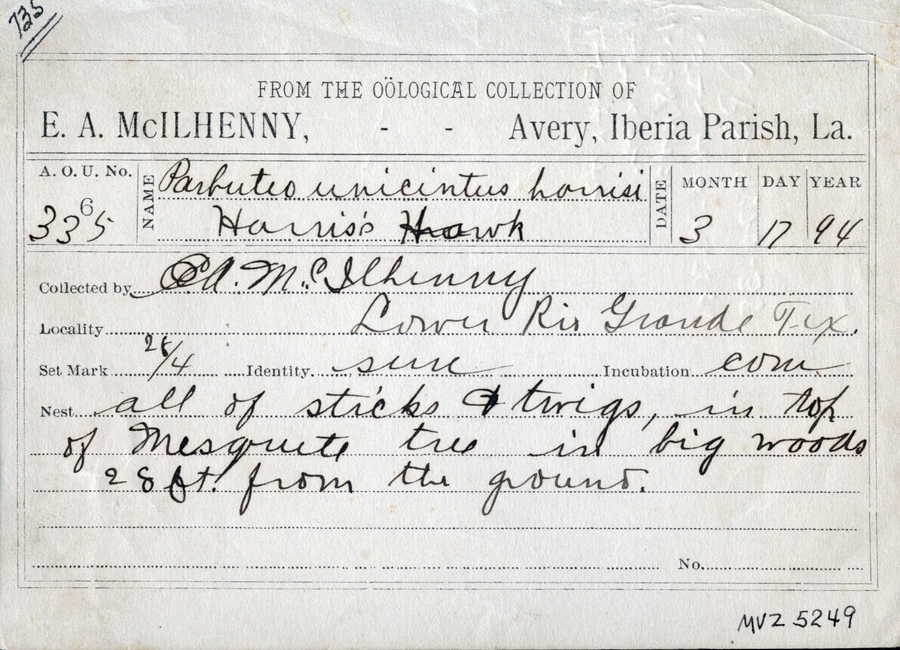 735
FROM THE OÖLOGICAL COLLECTION OF
E. A. McILHENNY, - - Avery, Iberia Parish, La.
A. O. U. No. 335 6
NAME Parbuteo unicintus harrisi
Harris's Hawk
DATE MONTH DAY YEAR
3 17 94
Collected by E. A. McIlhenny
Locality Lower Rio Grande Tex.
Set Mark 26/4 Identity sure Incubation com
Nest all of sticks & twigs, in top
of Mesquite tree in big woods
28 ft. from the ground.
No.
MVZ 5249